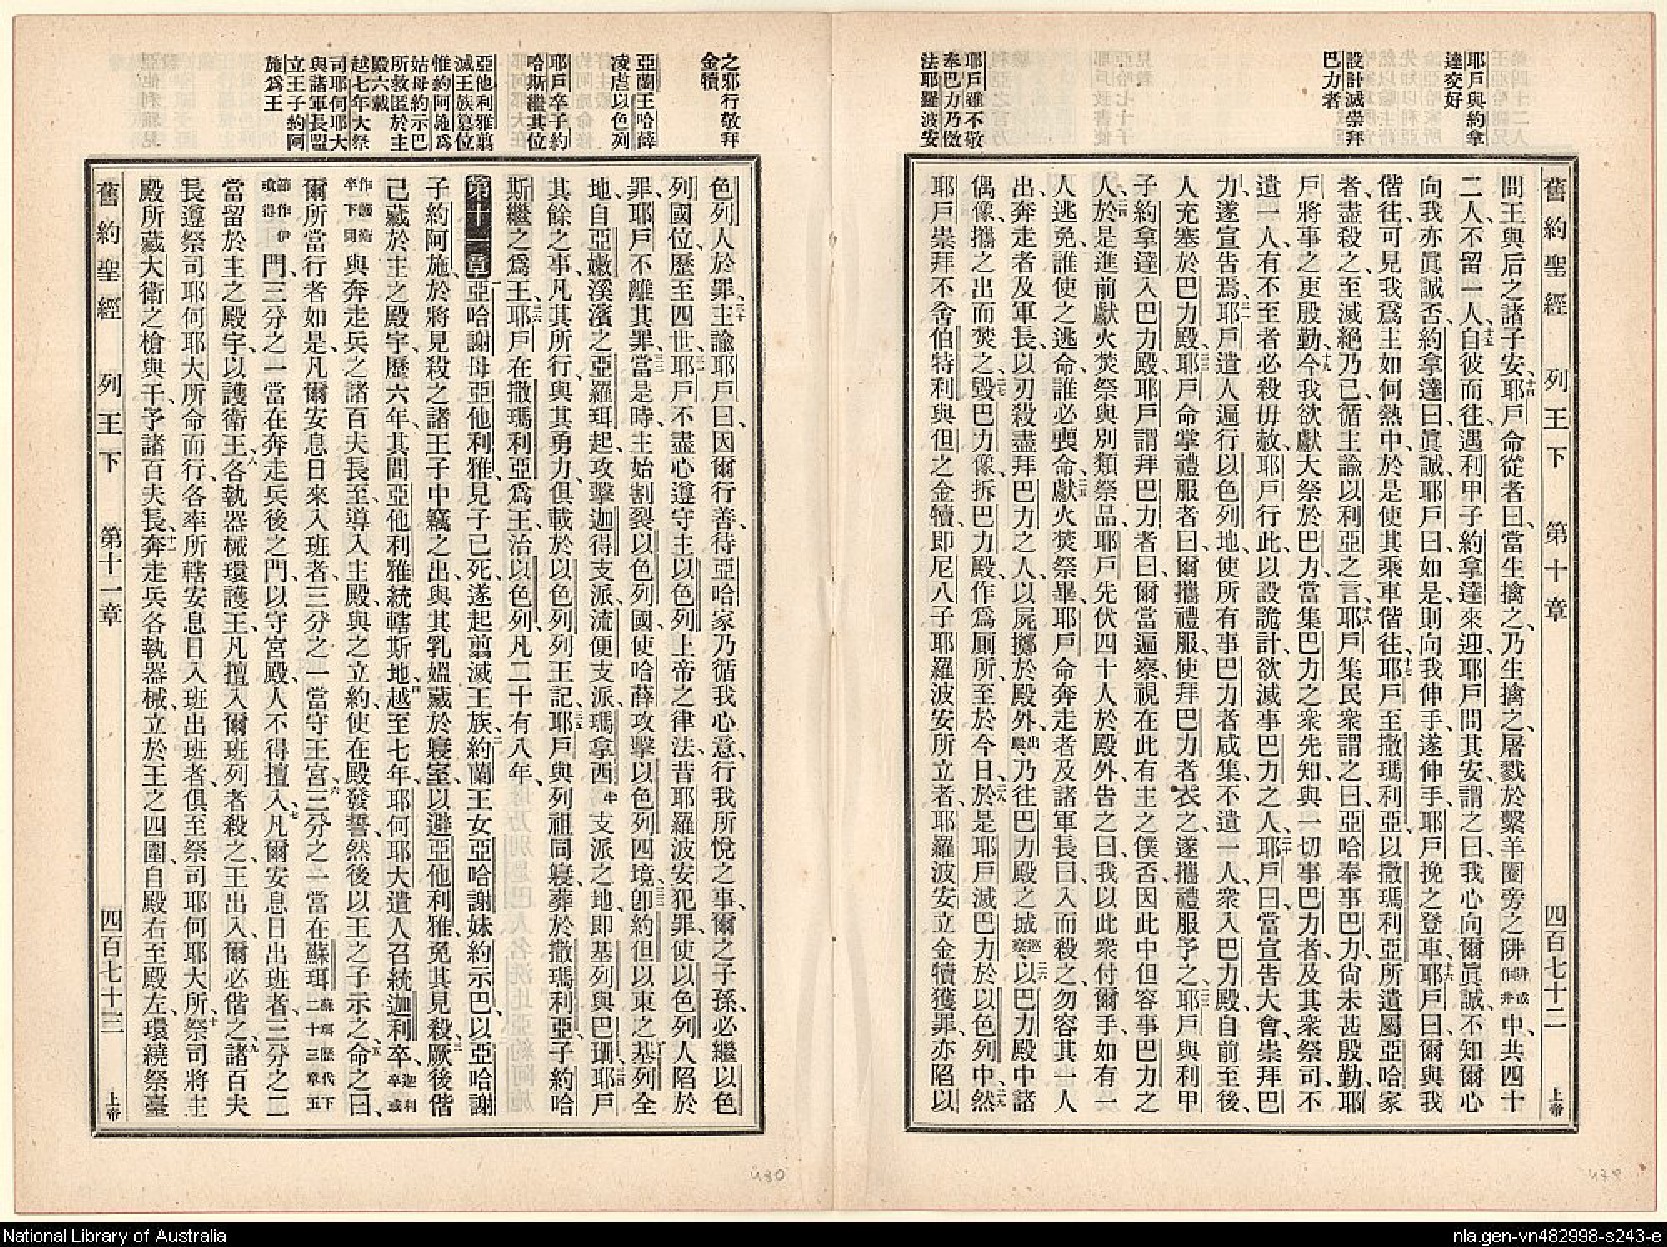 耶戶與約拿
達交好
設計滅崇拜
巴力者
耶戶雖不敬
奉巴力乃傚
法耶羅波安
舊約聖經 列王下 第十章 四百七十二 上帝
問王與后之諸子安、耶戶命從者曰、當生擒之、乃生擒之、屠戮於繫羊圈旁之阱阱或作井中、共四十
二人、不留一人、自彼而往、遇利甲子約拿達來迎、耶戶問其安、謂之曰、我心向爾眞誠、不知爾心
向我亦眞誠否、約拿達曰、眞誠、耶戶曰、如是、則向我伸手、遂伸手、耶戶挽之登車、耶戶曰、爾與我
偕往、可見我爲主如何熱中、於是使其乘車偕往、耶戶至撒瑪利亞、以撒瑪利亞所遺屬亞哈家
者、盡殺之、至滅絕乃已、循主諭以利亞之言、耶戶集民衆、謂之曰、亞哈奉事巴力、尙未甚殷勤、耶
戶將事之更殷勤、今我欲獻大祭於巴力、當集巴力之衆先知、與一切事巴力者、及其衆祭司、不
遺一人、有不至者必殺毋赦、耶戶行此、以設詭計、欲滅事巴力之人、耶戶曰、當宣告大會、崇拜巴
力、遂宣告焉、耶戶遣人遍行以色列地、使所有事巴力者咸集、不遺一人、衆入巴力殿、自前至後、
人充塞於巴力殿、耶戶命掌禮服者曰、爾攜禮服、使拜巴力者衣之、遂攜禮服予之、耶戶與利甲
子約拿達入巴力殿、耶戶謂拜巴力者曰、爾當遍察、視在此有主之僕否、因此中但容事巴力之
人、於是進前獻火焚祭與別類祭品、耶戶先伏四十人於殿外、告之曰、我以此衆付爾手、如有一
人逃免、誰使之逃命、誰必喪命、獻火焚祭畢、耶戶命奔走者及諸軍長曰、入而殺之、勿容其一人
出、奔走者及軍長、以刃殺盡拜巴力之人、以屍擲於殿外、出殿乃往巴力殿之城、以巴力殿中諸
偶像、攜之出而焚之、毀巴力像、拆巴力殿、作爲厠所、至於今日、於是耶戶滅巴力於以色列中、然
耶戶崇拜不舍伯特利與但之金犢、卽尼八子耶羅波安所立者、耶羅波安立金犢獲罪、亦陷以
之邪行敬拜
金犢
亞蘭王哈薛
凌虐以色列
耶戶卒子約
哈斯繼其位
亞他利雅翦
滅王族篡位
惟約阿施爲
姑母約示巴
所救匿於主
殿六載
越七年大祭
司耶何耶大
與諸軍長盟
立王子約阿
施爲王
色列人於罪、主諭耶戶曰、因爾行善、待亞哈家、乃循我心意、行我所悅之事、爾之子孫、必繼以色
列國位、歷至四世、耶戶不盡心遵守主以色列上帝之律法、昔耶羅波安犯罪、使以色列人陷於
罪、耶戶不離其罪、當是時、主始割裂以色列國、使哈薛攻擊以色列四境、卽約但以東之基列全
地、自亞嫩溪濱之亞羅珥起、攻擊迦得支派、流便支派、瑪拿西半支派之地、卽基列與巴珊、耶戶
其餘之事、凡其所行、與其勇力、俱載於以色列列王記、耶戶與列祖同寢、葬於撒瑪利亞、子約哈
斯繼之爲王、耶戶在撒瑪利亞爲王、治以色列、凡二十有八年、
第十一章 亞哈謝母亞他利雅、見子已死、遂起翦滅王族、約蘭王女、亞哈謝妹約示巴、以亞哈謝
子約阿施、於將見殺之諸王子中竊之出、與其乳媼藏於寢室、以避亞他利雅、免其見殺、厥後偕
己藏於主之殿宇、歷六年、其間亞他利雅統轄斯地、越至七年、耶何耶大遣人召統迦利卒、迦利卒或
作護衛卒下同與奔走兵之諸百夫長至、導入主殿、與之立約、使在殿發誓、然後以王之子示之、命之曰、
爾所當行者如是、凡爾安息日來入班者、三分之一當守王宮、三分之一當在蘇珥蘇珥歷代下二十三章五
節作伊或得門、三分之一當在奔走兵後之門、以守宮殿、人不得擅入、凡爾安息日出班者、三分之二
當留於主之殿宇、以護衛王、各執器械、環護王、凡擅入爾班列者殺之、王出入、爾必偕之、諸百夫
長遵祭司耶何耶大所命而行、各率所轄安息日入班出班者、俱至祭司耶何耶大所、祭司將主
殿所藏大衛之槍與干、予諸百夫長、奔走兵各執器械、立於王之四圍、自殿右至殿左、環繞祭臺
舊約聖經 列王下 第十一章 四百七十三 上帝
430
National Library of Australia
nla.gen-vn482998-s243-e